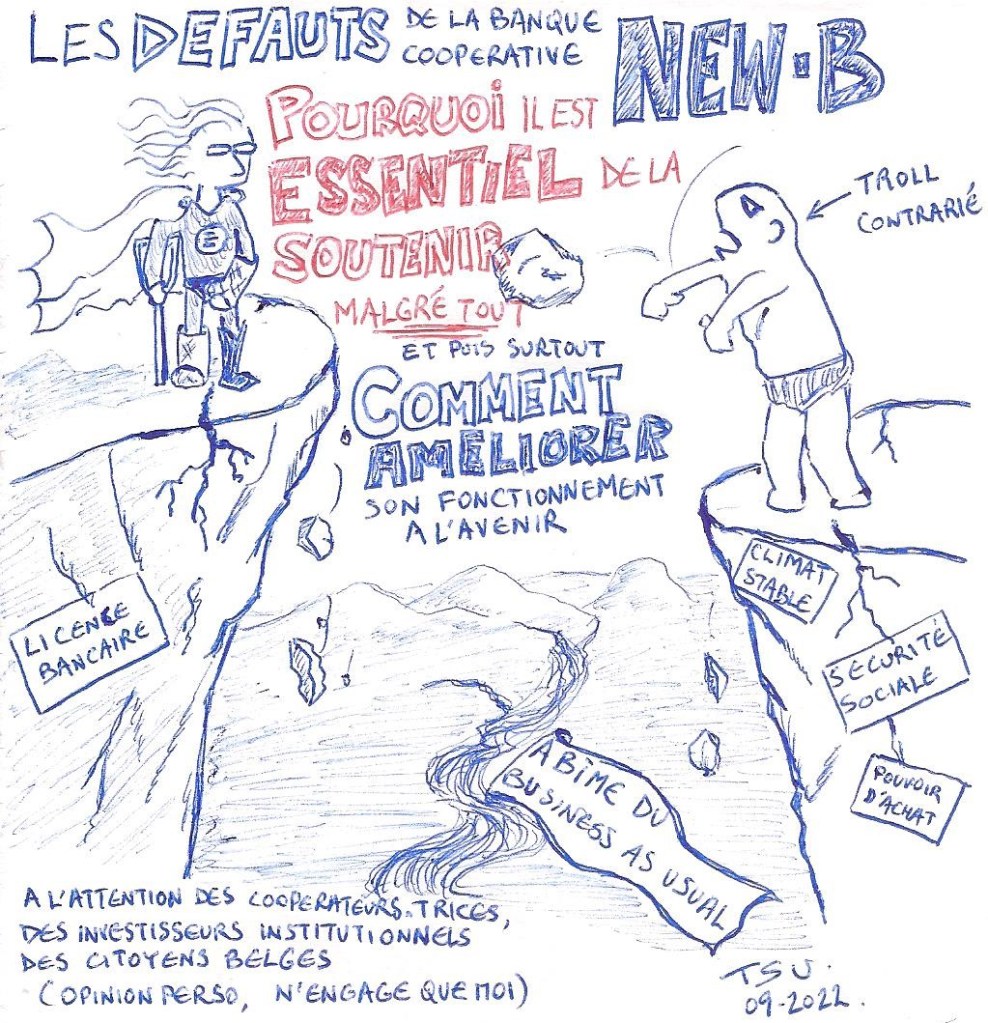 LES DEFAUTS DE LA BANQUE
COOPERATIVE NEW-B
POURQUOI IL EST
ESSENTIEL DE LA
SOUTENIR
MALGRÉ TOUT
ET PUIS SURTOUT
COMMENT
AMELIORER
SON FONCTIONNEMENT
A L'AVENIR
TROLL
CONTRARIÉ
E
LICENCE
BANCAIRE
CLIMAT
STABLE
SECURITÉ
SOCIALE
POUVOIR
D'ACHAT
ABÎME DU
BUSINESS AS USUAL
A L'ATTENTION DES COOPERATEURS.TRICES,
DES INVESTISSEURS INSTITUTIONNELS
DES CITOYENS BELGES
(OPINION PERSO, N'ENGAGE QUE MOI)
TSU.
09-2022.